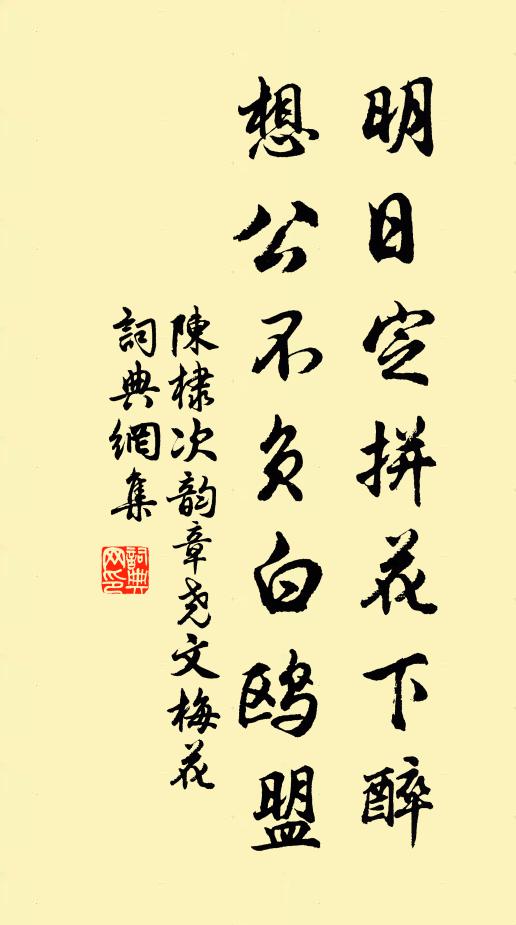 明日定拼花下醉
想公不負白鷗盟
陳棣次韵章尧文梅花
詞典網集
詞典
网印